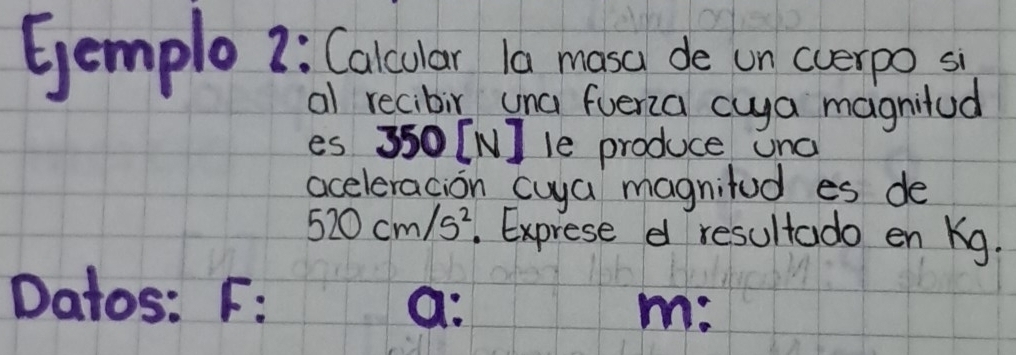 Ejemplo 2: Calcular la masa de un cuerpo si
al recibir una fuerza cuya magnitud
es 350 [N] le produce una
aceleración cuya magnitud es de
520 cm/s². Exprese el resultado en Kg.
Datos: F: a: m: